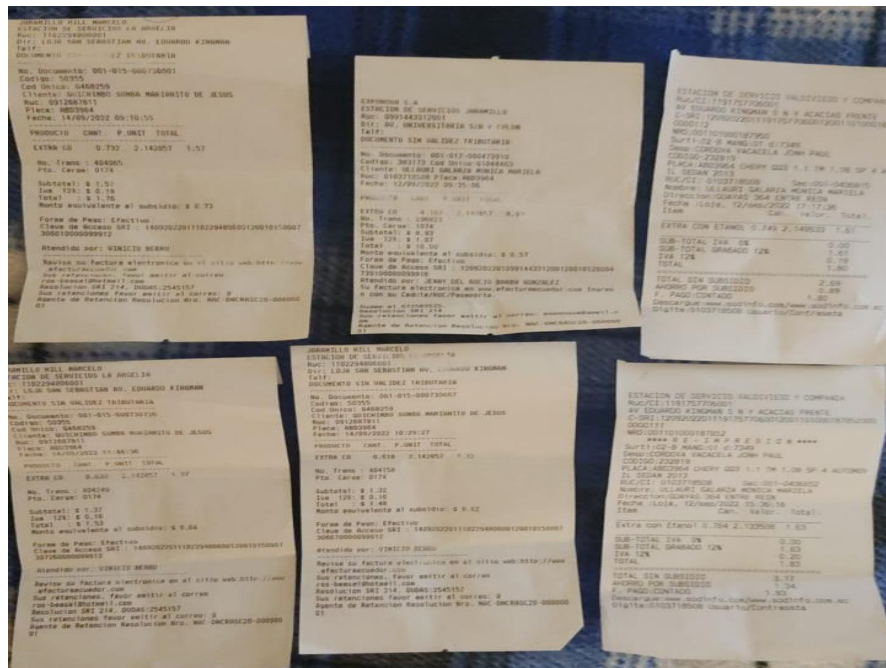 JARAMILLO HILL MARCELO
ESTACION DE SERVICIOS LA ARGELIA
Ruc: 1102294806001
Dir: LOJA SAN SEBASTIAN AV. EDUARDO KINGMAN
Telf:
DOCUMENTO
No. Documento: 001-015-000730501
Codigo: 50355
Cod Unico: 0468259
Cliente: QUICHIMBO SUMBA MARIANITO DE JESUS
Ruc: 0912687811
Placa: ABD3964
Fecha: 14/09/2022 09:10:55
PRODUCTO CANT. P.UNIT TOTAL
EXTRA CO 0.732 2.142857 1.57
No. Trans : 404065
Pto. Carga: 0174
Subtotal: $ 1.57
Iva 12%: $ 0.19
Total : $ 1.76
Monto equivalente al subsidio: $ 0.73
Forma de Pago: Efectivo
Clave de Acceso SRI :
Atendido por: VINICIO BERRU
Revise su factura electronica en el sitio web:http://www
.efacturaecuador.com
Sus retenciones, favor emitir al correo
ros-bease@hotmail.com
Resolucion SRI 214, DUDAS:2545157
Sus retenciones favor emitir al correo: 0
Agente de Retencion Resolucion Nro. NAC-DNCRASC20-000000
01
EXPONOVA S.A
ESTACION DE SERVICIOS JARAMILLO
Ruc: 0991443312001
Dir: AV. UNIVERSITARIA S/N Y COLON
Telf:
DOCUMENTO SIN VALIDEZ TRIBUTARIA
Cliente: ULLAURI GALARZA MONICA MARIELA
Ruc: 0103718508 Placa:ABD3964
Fecha: 12/09/2022 09:35:06
PRODUCTO CANT P.UNIT TOTAL
Pto. Carga: 1074
Iva 12%: $ 1.07
Total : $ 10.00
Monto equivalente al subsidio: $ 0.57
Forma de Pago: Efectivo
Clave de Acceso SRI :
Atendido por: JENNY DEL ROCIO
Resolucion SRI 214
Agente de Retencion Resolucion Nro.
01
ESTACION DE SERVICIO VALDIVIESO Y COMPAÑIA
Ruc/CI:1191757706001
AV EDUARDO KINGMAN S N Y ACACIAS FRENTE
NRO:001101000187950
Surti:02-B MANG:01 d:7349
Desp:CORDOVA VACACELA JONH PAUL
CODIGO:232819
PLACA:ABD3964 CHERY QQ3 1.1 TM 1.0B 5P 4 A
IL SEDAN 2013
RUC/CI: 0103718508 Sec:001-0436815
Nombre: ULLAURI GALARZA MONICA MARIELA
Direccion:GUAYAS 364 ENTRE REON
Fecha :LOJA, 12/sep/2022 17:17:36
Item Can. Valor. Total.
EXTRA CON ETANOL 0.749 2.149533 1.61
SUB-TOTAL IVA 0% 0.00
SUB-TOTAL GRABADO 12% 1.61
IVA 12% 0.19
TOTAL 1.80
TOTAL SIN SUBSIDIO 2.69
AHORRO POR SUBSIDIO 0.89
F. PAGO:CONTADO 1.80
Descargue:www.sodinfo.com/www.sodinfo.com.ec
Digite:0103718508 Usuario/Contraseña
JARAMILLO HILL MARCELO
ESTACION DE SERVICIOS LA ARGELIA
: 1102294806001
: LOJA SAN SEBASTIAN AV. EDUARDO KINGMAN
DOCUMENTO SIN VALIDEZ TRIBUTARIA
Codigo: 50355
Cliente: QUICHIMBO SUMBA MARIANITO DE JESUS
Ruc: 0912687811
Placa: ABD3964
PRODUCTO CANT. P.UNIT TOTAL
EXTRA CO
No. Trans : 404249
Pto. Carga: 0174
Subtotal: $ 1.37
Iva 12%: $ 0.16
Total : $ 1.53
Monto equivalente al subsidio: $ 0.64
Forma de Pago: Efectivo
Clave de Acceso SRI :
Atendido por: VINICIO BERRU
Revise su factura electronica en el sitio web:http://www
.efacturaecuador.com
Sus retenciones, favor emitir al correo
ros-bease@hotmail.com
Resolucion SRI 214, DUDAS:2545157
Sus retenciones favor emitir al correo: 0
Agente de Retencion Resolucion Nro. NAC-DNCRASC20-000000
01
JARAMILLO HILL MARCELO
ESTACION DE SERVICIOS
Ruc: 1102294806001
Dir: LOJA SAN SEBASTIAN AV. EDUARDO KINGMAN
Telf:
DOCUMENTO SIN VALIDEZ TRIBUTARIA
No. Documento: 001-015-000730607
Codigo: 50355
Cod Unico: 0468259
Cliente: QUICHIMBO SUMBA MARIANITO DE JESUS
Ruc: 0912687811
Placa: ABD3964
Fecha: 14/09/2022 10:29:27
PRODUCTO CANT. P.UNIT TOTAL
EXTRA CO 2.142857
No. Trans : 404158
Pto. Carga: 0174
Subtotal: $ 1.32
Iva 12%: $ 0.16
Total : $ 1.48
Monto equivalente al subsidio: $ 0.62
Forma de Pago: Efectivo
Clave de Acceso SRI :
Atendido por: VINICIO BERRU
Revise su factura electronica en el sitio web:http://www
.efacturaecuador.com
Sus retenciones, favor emitir al correo
ros-bease@hotmail.com
Resolucion SRI 214, DUDAS:2545157
Sus retenciones favor emitir al correo: 0
Agente de Retencion Resolucion Nro. NAC-DNCRASC20-000000
01
ESTACION DE SERVICIO VALDIVIESO Y COMPAÑIA
Ruc/CI:1191757706001
AV EDUARDO KINGMAN S N Y ACACIAS FRENTE
NRO:001101000187852
**** RE-IMPRESION ****
Surti:02-B MANG:01 c:7349
Desp:CORDOVA VACACELA JONH PAUL
CODIGO:232819
PLACA:ABD3964 CHERY QQ3 1.1 TM 1.0B 5P 4 AUTOMOV
IL SEDAN 2013
RUC/CI: 0103718508 Sec:001-0436652
Nombre: ULLAURI GALARZA MONICA MARIELA
Direccion:GUAYAS 364 ENTRE REON
Fecha :LOJA, 12/sep/2022 15:36:16
Item Valor. Total.
Extra con Etanol 0.764 2.133508 1.63
SUB-TOTAL IVA 0% 0.00
SUB-TOTAL GRABADO 12% 1.63
IVA 12% 0.20
TOTAL 1.83
TOTAL SIN SUBSIDIO 3.17
AHORRO POR SUBSIDIO 1.34
F. PAGO:CONTADO 1.83
Descargue:www.sodinfo.com/www.sodinfo.com.ec
Digite:0103718508 Usuario/Contraseña